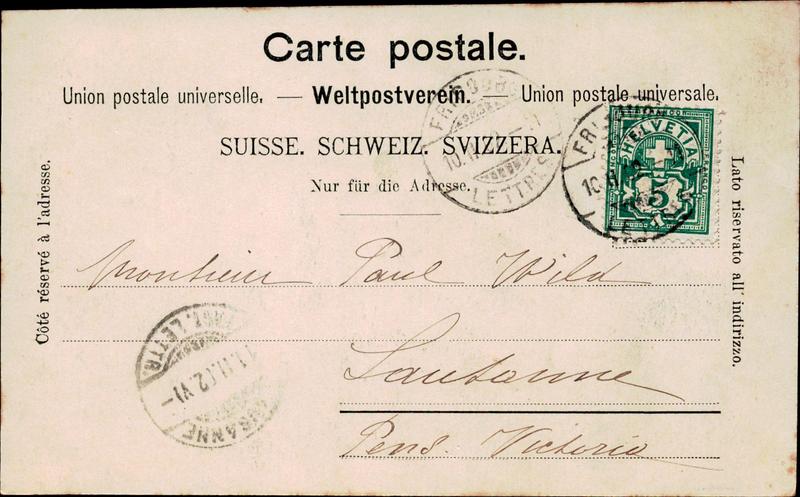 Carte postale.
Union postale universelle. — Weltpostverein. — Union postale universale.
SUISSE. SCHWEIZ. SVIZZERA.
Nur für die Adresse.
Côté réservé à l'adresse.
Lato riservato all' indirizzo.
HELVETIA
5
LETTRES
Monsieur Paul Wild
Lausanne
Pens. Victoria
LETTR.
11.II.02.VI